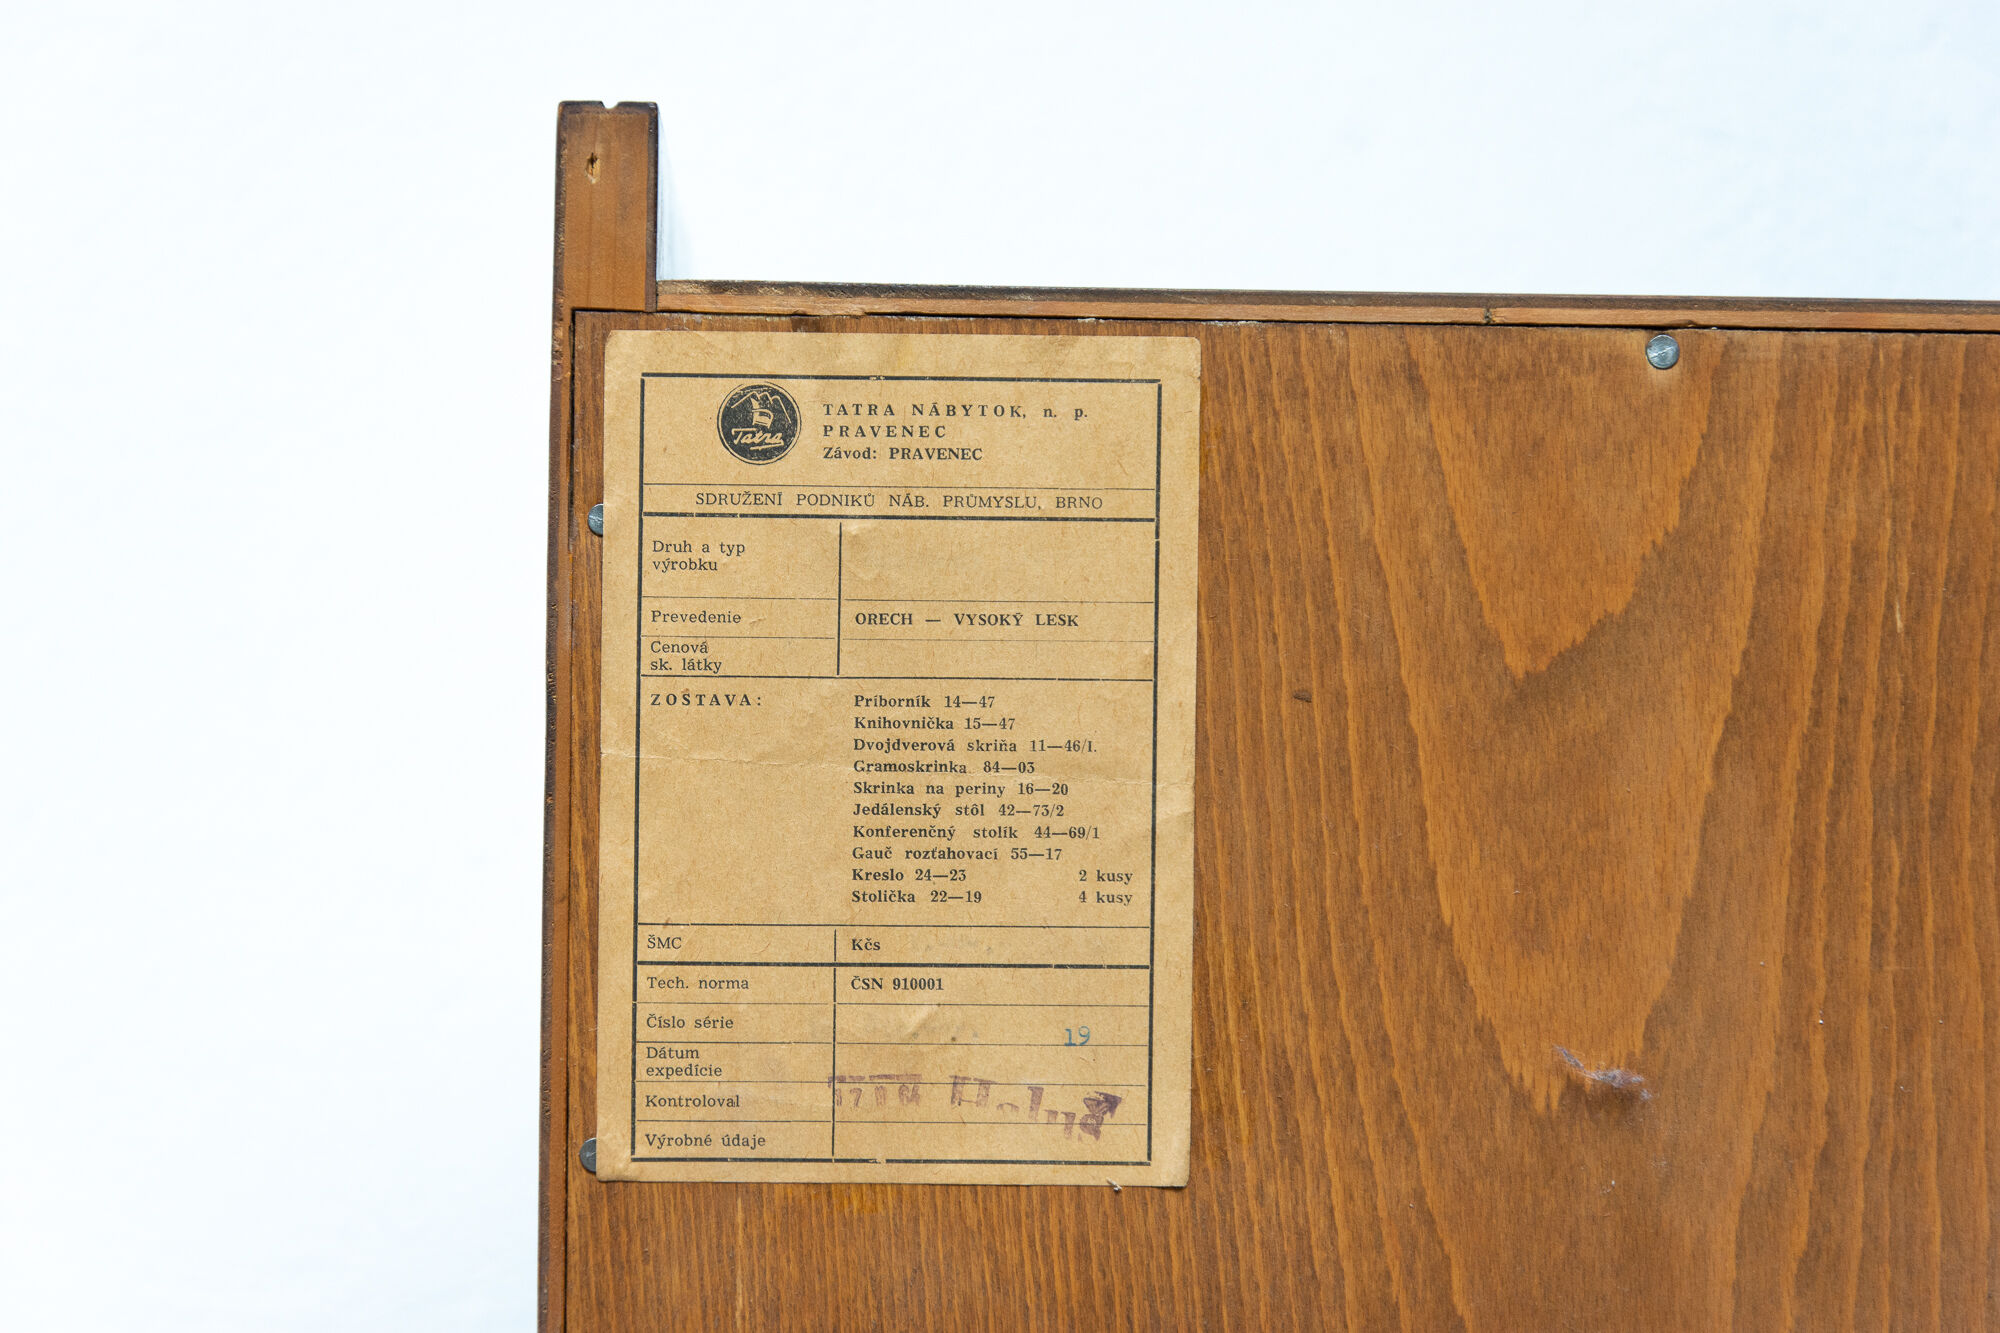 Tatra
TATRA NÁBYTOK, n. p.
PRAVENEC
Závod: PRAVENEC
SDRUŽENÍ PODNIKŮ NÁB. PRŮMYSLU, BRNO
Druh a typ
výrobku
Prevedenie ORECH — VYSOKÝ LESK
Cenová
sk. látky
ZOSTAVA: Príborník 14—47
Knihovnička 15—47
Dvojdverová skriňa 11—46/I.
Gramoskrinka 84—03
Skrinka na periny 16—20
Jedálenský stôl 42—73/2
Konferenčný stolík 44—69/1
Gauč rozťahovací 55—17
Kreslo 24—23 2 kusy
Stolička 22—19 4 kusy
ŠMC Kčs
Tech. norma ČSN 910001
Číslo série 19
Dátum
expedície
Kontroloval
Výrobné údaje